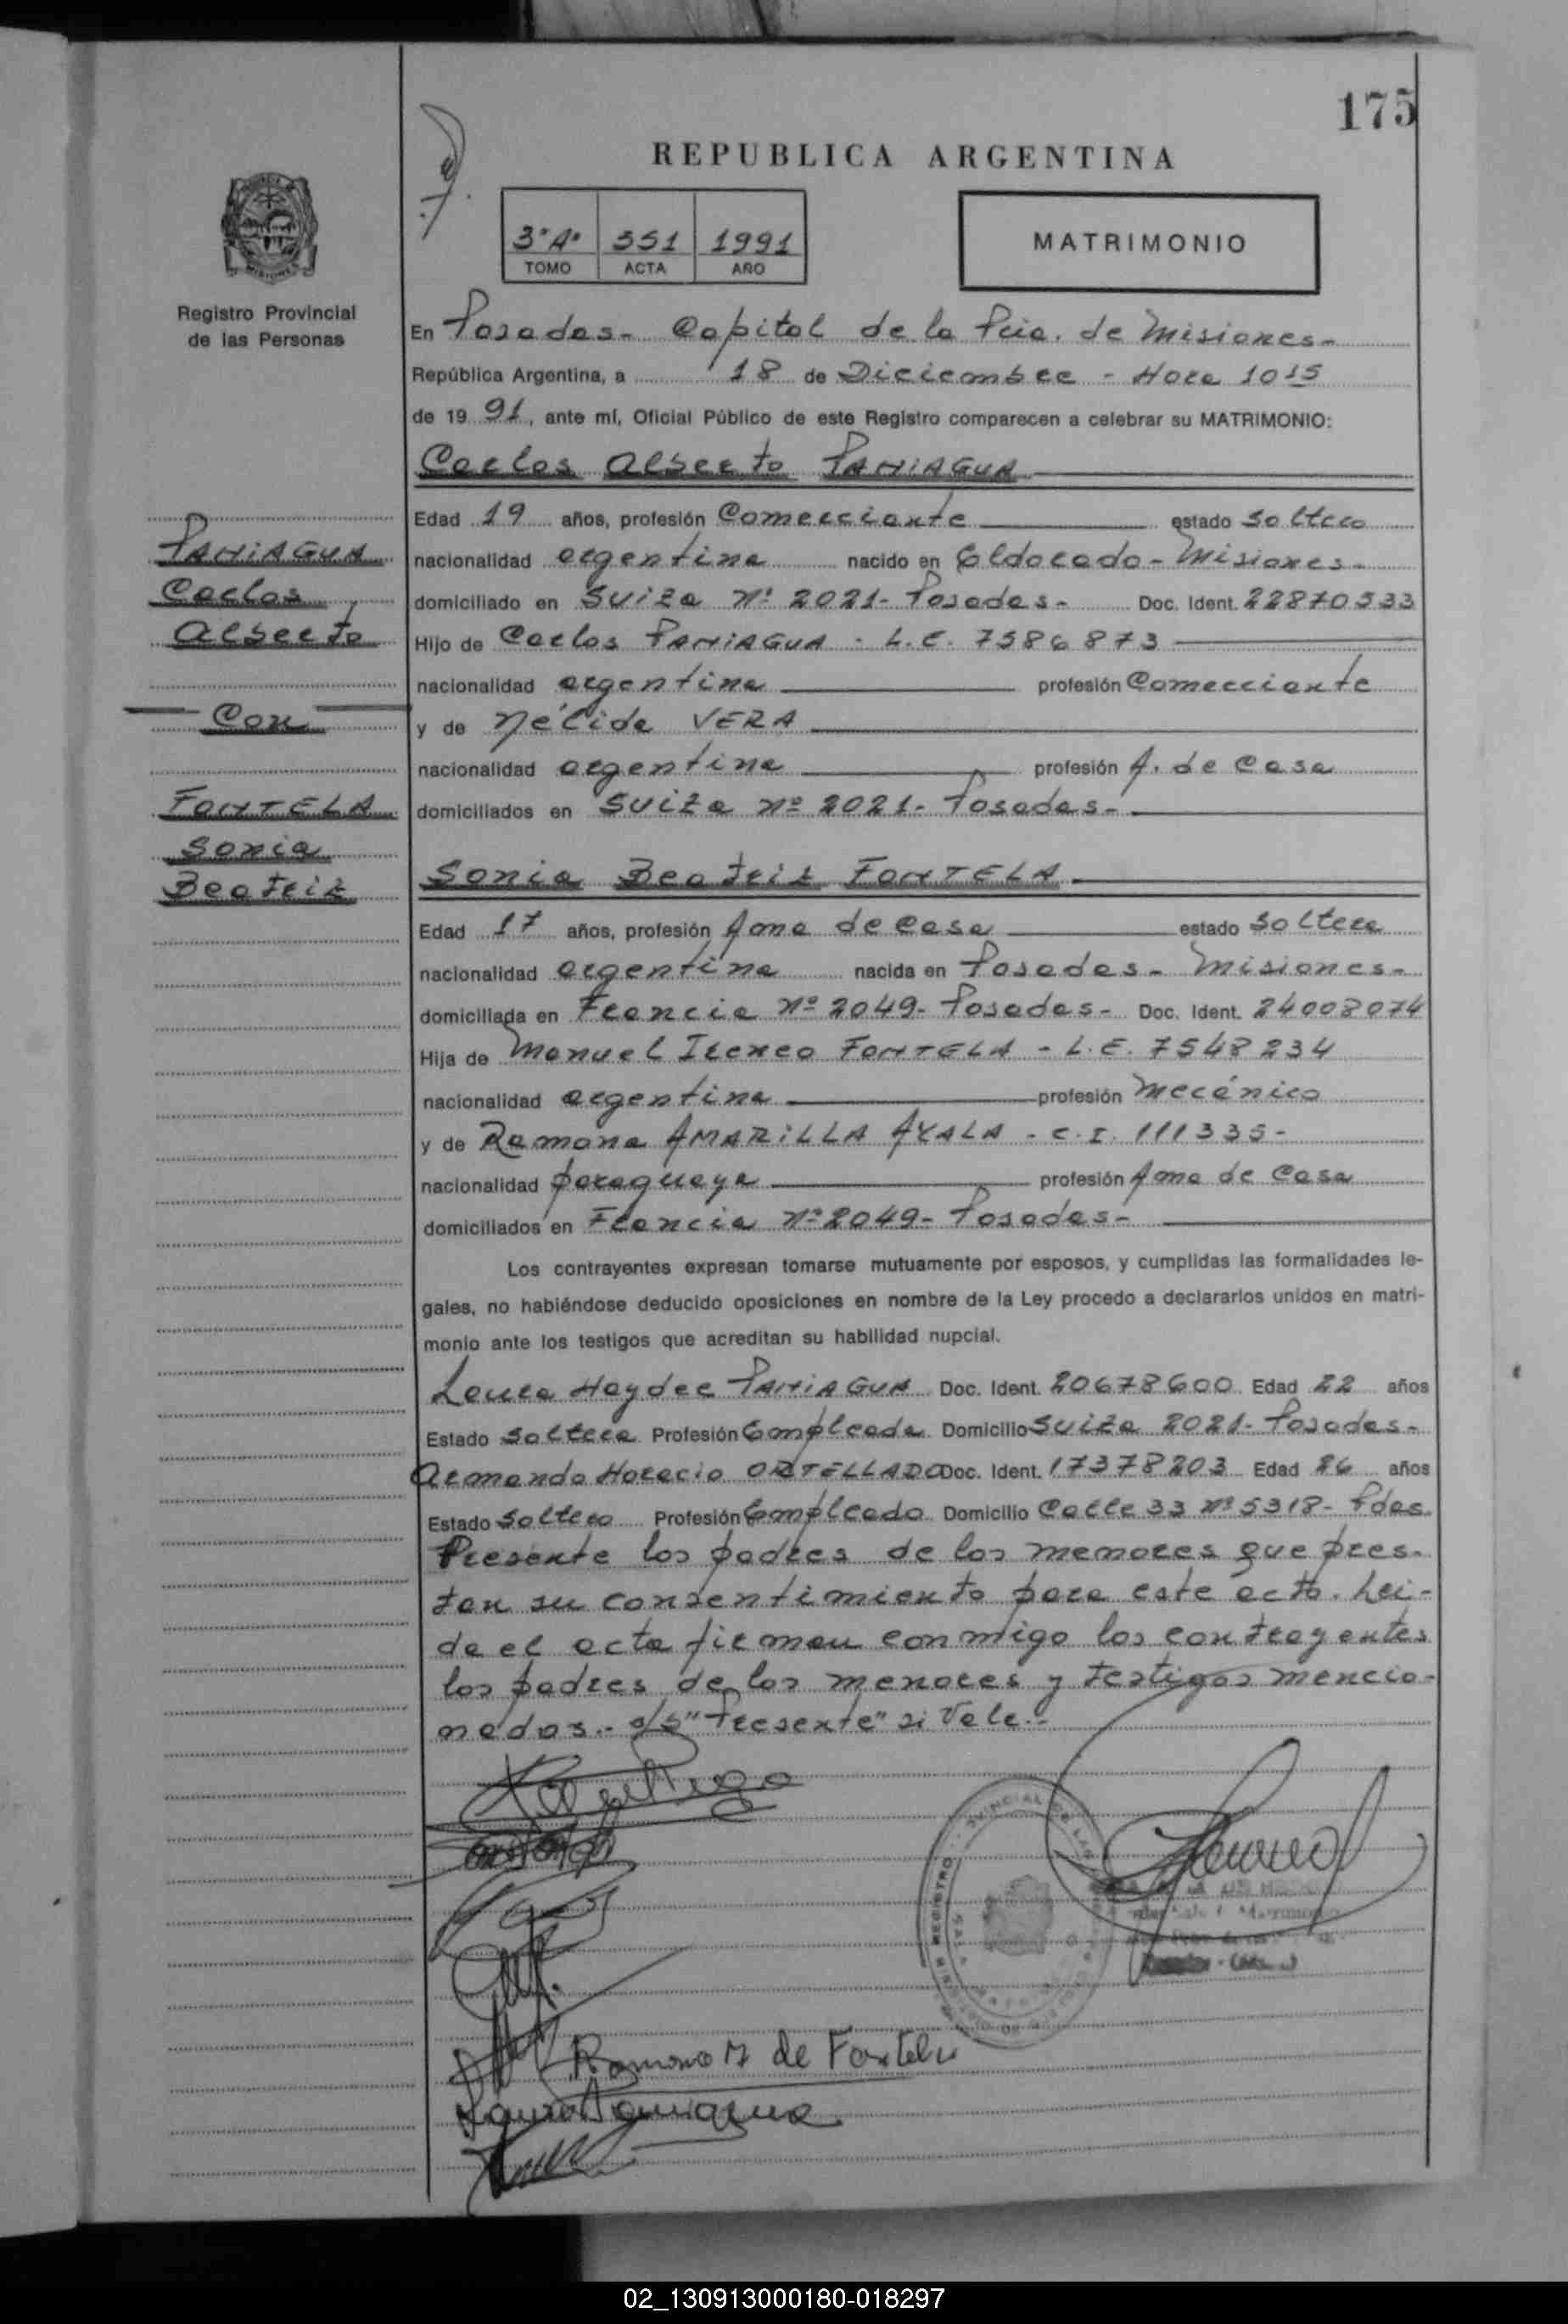 175
REPUBLICA ARGENTINA
3°A° 551 1991
TOMO ACTA AÑO
MATRIMONIO
Registro Provincial
de las Personas
En Posadas- Capital de la Pcia. de Misiones-
República Argentina, a 18 de Diciembre - Hora 10 15
de 19 91, ante mí, Oficial Público de este Registro comparecen a celebrar su MATRIMONIO:
Carlos Alberto PANIAGUA
Edad 19 años, profesión Comerciante estado soltero
PANIAGUA
nacionalidad argentina nacido en Eldorado - Misiones-
Carlos
domiciliado en Suiza Nº 2021- Posadas- Doc. Ident. 22870533
Alberto
Hijo de Carlos PANIAGUA - L.E. 7586873
nacionalidad argentina profesión Comerciante
Con
y de Nélida VERA
nacionalidad argentina profesión A. de Casa
FONTELA
domiciliados en Suiza Nº 2021- Posadas-
Sonia
Beatriz
Sonia Beatriz FONTELA
Edad 17 años, profesión Ama de Casa estado soltera
nacionalidad argentina nacida en Posadas- Misiones-
domiciliada en Francia Nº 2049- Posadas- Doc. Ident. 24008074
Hija de Manuel Ireneo FONTELA - L.E. 7548234
nacionalidad argentina profesión Mecánico
y de Ramona AMARILLA AYALA - C.I. 111335-
nacionalidad paraguaya profesión Ama de Casa
domiciliados en Francia Nº 2049- Posadas-
Los contrayentes expresan tomarse mutuamente por esposos, y cumplidas las formalidades le-
gales, no habiéndose deducido oposiciones en nombre de la Ley procedo a declararlos unidos en matri-
monio ante los testigos que acreditan su habilidad nupcial.
Laura Haydee PANIAGUA Doc. Ident. 20678600 Edad 22 años
Estado soltera Profesión Empleada Domicilio Suiza 2021- Posadas-
Armando Horacio ORTELLADO Doc. Ident. 17378203 Edad 26 años
Estado soltero Profesión Empleado Domicilio Calle 33 Nº 5318- Pdas.
Presente los padres de los menores que pres-
tan su consentimiento para este acto. Leí-
da el acta firman conmigo los contrayentes
los padres de los menores y testigos mencio-
nados.- s/b "Presente" si Vale.-
Ramona A de Fontela
Laura Paniagua
02_130913000180-018297